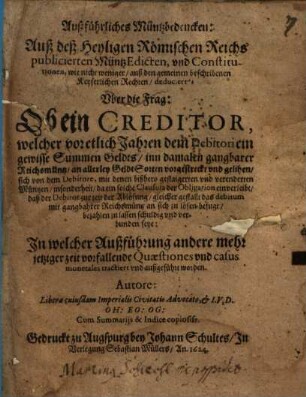 Außführliches Müntzbedencken:
Auß deß Heyligen Römischen Reichs
publicierten Müntz Edicten, vnd Constitu-
tionen, wie nicht weniger / auß den gemeinen beschribenen
Keyserlichen Rechten / deducirt:
Vber die Frag:
Ob ein CREDITOR,
welcher vor etlich Jahren dem Debitori ein
gewisse Summen Geldes / inn damaln gangbarer
Reichsmüntz / an allerley Geldt Sorten vorgestreckt vnd gelihen /
sich von dem Debitore, mit denen bißhero gestaigerten vnd veränderten
Müntzen / insonderheit / da ein solche Clausula der Obligation einverleibt /
daß der Debitor zur zeit der Ablösung / gleicher gestalt das debitum
mit gangbahrer Reichsmüntz an sich zu lösen befügt /
bezahlen zu lassen schuldig vnd ver-
bunden seye:
In welcher Außführung andere mehr
jetziger zeit vorfallende Quæstiones vnd casus
monetales tractiert vnd außgeführt worden.
Autore:
Liberæ cuiusdam Imperialis Civitatis Advocato, & I.V.D.
OH: EO: OG:
Cum Summarijs & Indice copiosiss.
Gedruckt zu Augspurg bey Johann Schultes / In
Verlegung Sebastian Müllers / An. 1624.